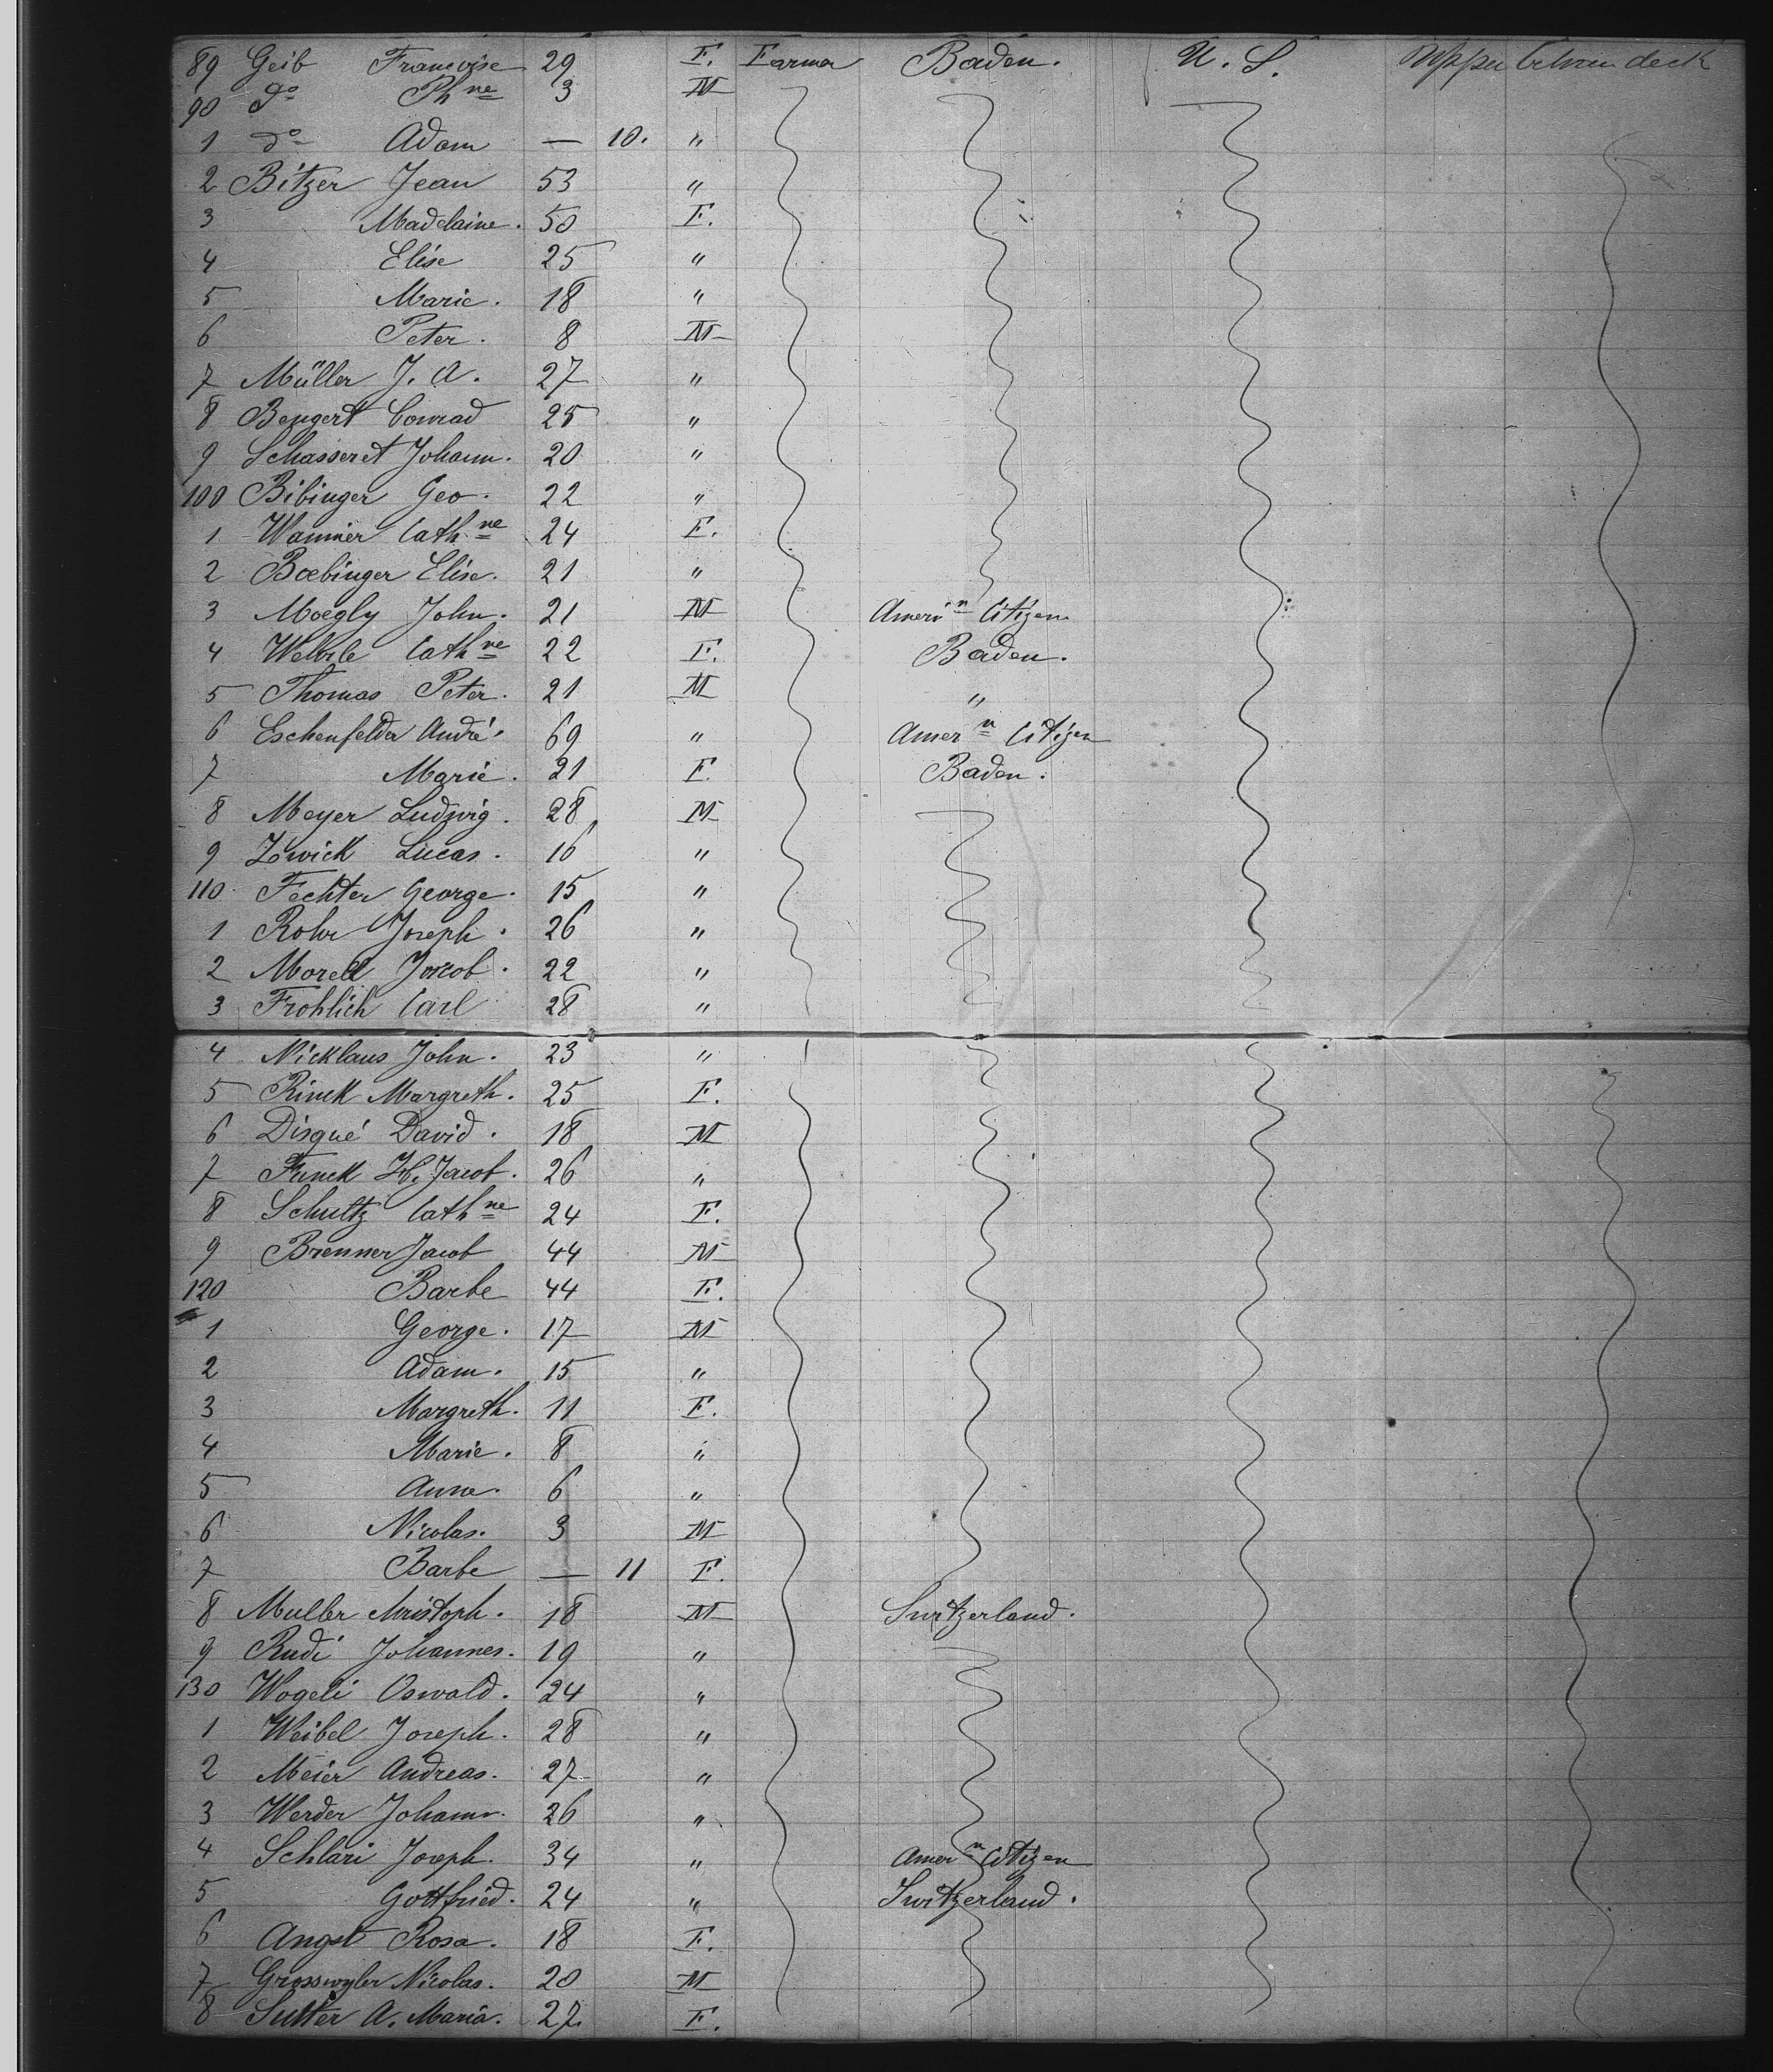 89 Geib Francoise 29 F. Farmer Baden. U. S. Upper between deck
90 do Phne 3 M
1 do Adam — 10. "
2 Bitzer Jean 53 "
3 Madelaine. 50 F.
4 Elise 25 "
5 Marie. 18 "
6 Peter. 8 M
7 Müller J. A. 27 "
8 Bengert Conrad 25 "
9 Schasseret Johann. 20 "
100 Bibinger Geo. 22 "
1 Wannier Cathne 24 F.
2 Boebinger Elise. 21 "
3 Moegly John. 21 M Amerin Citizen
4 Cathne 22 F. Baden.
5 Thomas Peter. 21 M "
6 Eschenfelder André. 69 " Amern Citizen
7 Marie. 21 F. Baden.
8 Meyer Ludwig. 28 M
9 Zwick Lucas. 16 "
110 Fechter George. 15 "
1 Rohr Joseph. 26 "
2 Morell Jacob. 22 "
3 Frohlich Carl 28 "
4 Nicklaus John. 23 "
5 Rinck Margreth. 25 F.
6 Disqué David. 18 M
7 Funck H. Jacob. 26 "
8 Schultz Cathne 24 F.
9 Brenner Jacob 44 M
120 Barbe 44 F.
1 George. 17 M
2 Adam. 15 "
3 Margreth. 11 F.
4 Marie. 8 "
5 Anne. 6 "
6 Nicolas. 3 M
7 Barbe — 11 F.
8 Muller Christoph. 18 M Switzerland.
9 Rudi Johannes. 19 "
130 Wogeli Oswald. 24 "
1 Weibel Joseph. 28 "
2 Meier Andreas. 27 "
3 Werder Johann. 26 "
4 Schlari Joseph. 34 " Amern Citizen
5 Gottfried. 24 " Switzerland.
6 Angst Rosa. 18 F.
7 Grosswyler Nicolas. 20 M
8 Sutter A. Maria. 27. F.